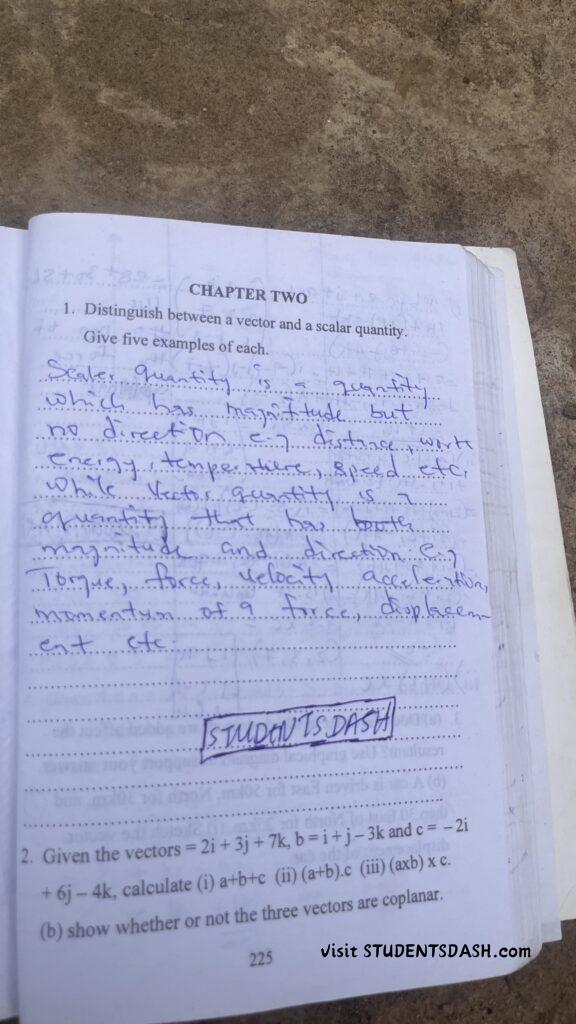 CHAPTER TWO
1. Distinguish between a vector and a scalar quantity.
Give five examples of each.
Scaler quantity is a quantity
which has magnitude but
no direction e.g distance, work
energy, temperature, speed etc,
while vector quantity is a
quantity that has both
magnitude and direction e.g
Torque, force, velocity acceleration,
momentum of a force, displacem-
ent etc.
STUDENTSDASH
2. Given the vectors = 2i + 3j + 7k, b = i + j – 3k and c = – 2i
+ 6j – 4k, calculate (i) a+b+c (ii) (a+b).c (iii) (axb) x c.
(b) show whether or not the three vectors are coplanar.
225
visit STUDENTSDASH.com